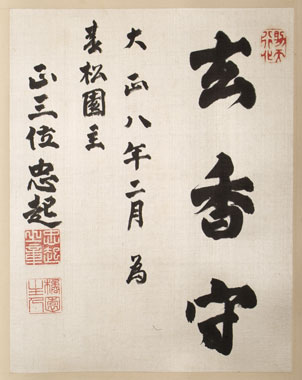 玄香守
大正八年二月為
春松園主
正三位忠起